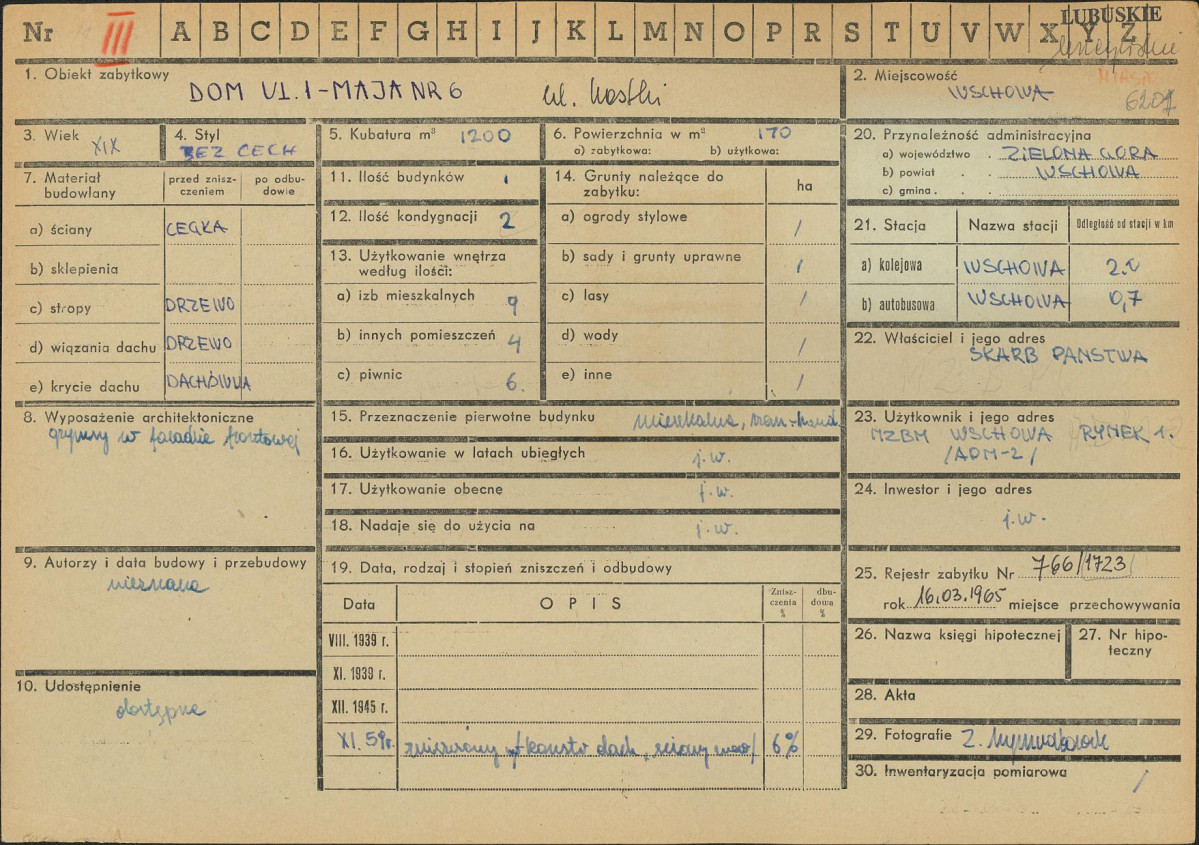 Nr III A B C D E F G H I J K L M N O P R S T U V W X Y Z
LUBUSKIE
MIASTO
6207
1. Obiekt zabytkowy
DOM UL. 1-MAJA NR 6 ul. Kostki
2. Miejscowość
WSCHOWA
3. Wiek
XIX
4. Styl
BEZ CECH
5. Kubatura m³ 1200
6. Powierzchnia w m² 170
a) zabytkowa: b) użytkowa:
7. Materiał budowlany
przed zniszczeniem
po odbudowie
a) ściany CEGŁA
b) sklepienia
c) stropy DRZEWO
d) wiązania dachu DRZEWO
e) krycie dachu DACHÓWKA
8. Wyposażenie architektoniczne
gzymsy w fasadzie frontowej
9. Autorzy i data budowy i przebudowy
nieznana
10. Udostępnienie
dostępne
11. Ilość budynków 1
12. Ilość kondygnacji 2
13. Użytkowanie wnętrza
według ilości:
a) izb mieszkalnych 9
b) innych pomieszczeń 4
c) piwnic 6.
14. Grunty należące do
zabytku:
ha
a) ogrody stylowe /
b) sady i grunty uprawne /
c) lasy /
d) wody /
e) inne /
15. Przeznaczenie pierwotne budynku mieszkalne,
16. Użytkowanie w latach ubiegłych j.w.
17. Użytkowanie obecne j.w.
18. Nadaje się do użycia na j.w.
19. Data, rodzaj i stopień zniszczeń i odbudowy
Data
OPIS
Zniszczenia %
dbudowa %
VIII. 1939 r.
XI. 1939 r.
XII. 1945 r.
XI. 59r. zniszczony w/ konstr. dach, ściany 6%
20. Przynależność administracyjna
a) województwo . ZIELONA GÓRA
b) powiat . . WSCHOWA
c) gmina . .
21. Stacja
Nazwa stacji
Odległość od stacji w km
a) kolejowa WSCHOWA 2.0
b) autobusowa WSCHOWA 0,7
22. Właściciel i jego adres
SKARB PAŃSTWA
23. Użytkownik i jego adres
MZBM WSCHOWA RYNEK 1.
/ADM-2/
24. Inwestor i jego adres
j.w.
25. Rejestr zabytku Nr 766/1723
rok 16.03.1965 miejsce przechowywania
26. Nazwa księgi hipotecznej
27. Nr hipoteczny
28. Akta
29. Fotografie Z.
30. Inwentaryzacja pomiarowa /